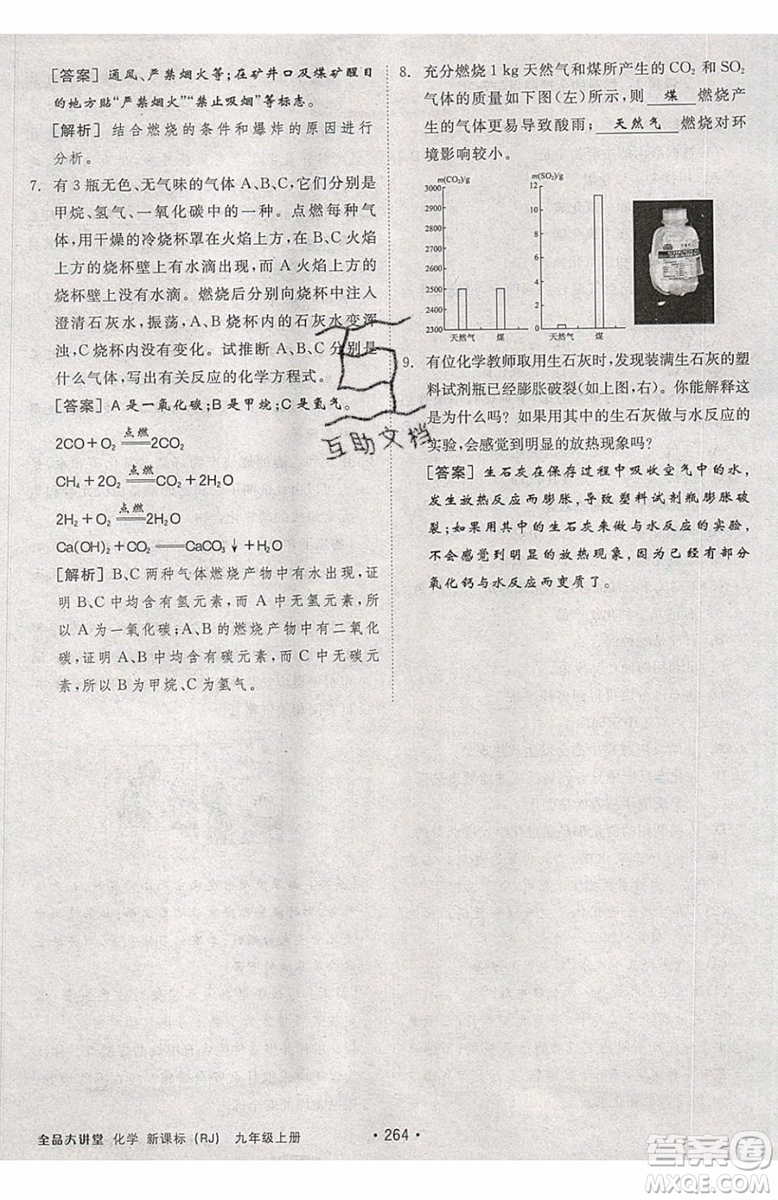 [答案] 通风、严禁烟火等;在矿井口及煤矿醒目
的地方贴“严禁烟火”“禁止吸烟”等标志。
[解析] 结合燃烧的条件和爆炸的原因进行
分析。
7. 有 3 瓶无色、无气味的气体 A、B、C,它们分别是
甲烷、氢气、一氧化碳中的一种。点燃每种气
体,用干燥的冷烧杯罩在火焰上方,B、C 火焰
上方的烧杯壁上有水滴出现,而 A 火焰上方的
烧杯壁上没有水滴。燃烧后分别向烧杯中注入
澄清石灰水,振荡,A、B 烧杯内的石灰水变浑
浊,C 烧杯内没有变化。试推断 A、B、C 分别是
什么气体,写出有关反应的化学方程式。
[答案] A 是一氧化碳;B 是甲烷;C 是氢气。
2CO+O₂ 点燃 2CO₂
CH₄+2O₂ 点燃 CO₂+2H₂O
2H₂+O₂ 点燃 2H₂O
Ca(OH)₂+CO₂══CaCO₃↓+H₂O
[解析] B、C 两种气体燃烧产物中有水出现,证
明 B、C 中均含有氢元素,而 A 中无氢元素,所
以 A 为一氧化碳;A、B 的燃烧产物中有二氧化
碳,证明 A、B 中均含有碳元素,而 C 中无碳元
素,所以 B 为甲烷、C 为氢气。
8. 充分燃烧 1 kg 天然气和煤所产生的 CO₂ 和 SO₂
气体的质量如下图(左)所示,则 煤 燃烧产
生的气体更易导致酸雨; 天然气 燃烧对环
境影响较小。
m(CO₂)/g
3000
2900
2800
2700
2600
2500
2400
2300
天然气 煤
m(SO₂)/g
12
10
8
6
4
2
0
天然气 煤
9. 有位化学教师取用生石灰时,发现装满生石灰的塑
料试剂瓶已经膨胀破裂(如上图,右)。你能解释这
是为什么吗? 如果用其中的生石灰做与水反应的
实验,会感觉到明显的放热现象吗?
[答案] 生石灰在保存过程中吸收空气中的水,
发生放热反应而膨胀,导致塑料试剂瓶膨胀破
裂;用此瓶中的生石灰来做与水反应的实验,
不会感觉到明显的放热现象,因为其中大部分
氧化钙与水反应过了。
互助文档
全品大讲堂 化学 新课标 (RJ) 九年级上册
· 264 ·
作业帮